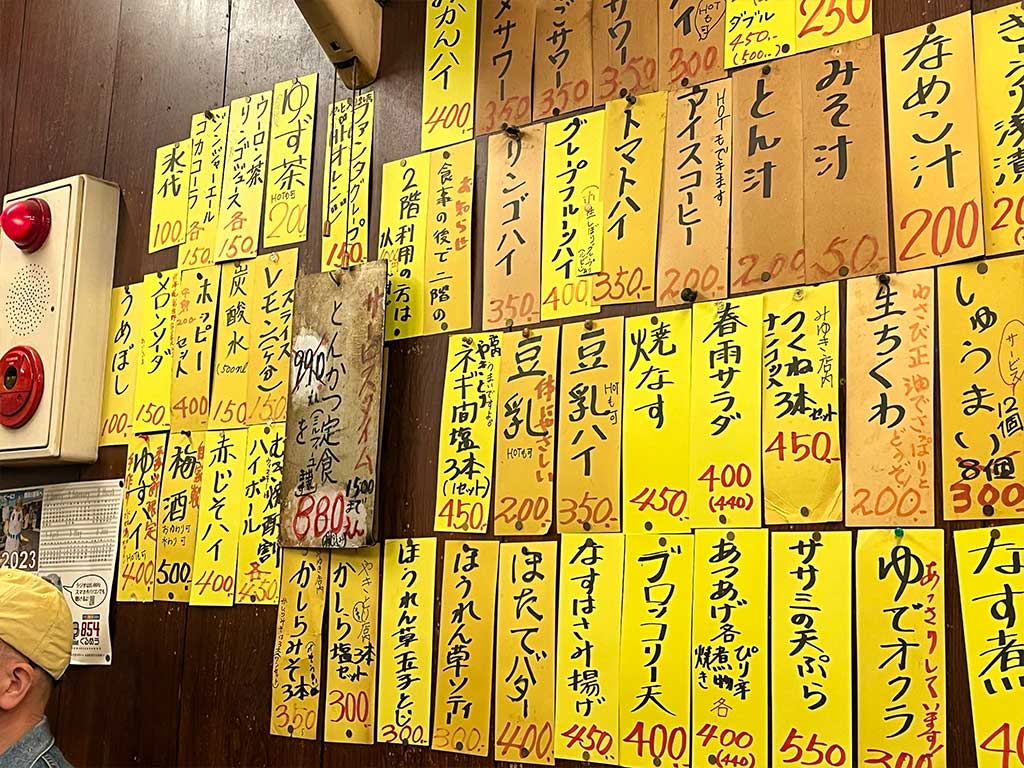 みかんハイ
400
サワー
350
サワー
350
サワー
350
HOTも可
300
ダブル
450.-
(500-)
250
トマトハイ
350.-
アイスコーヒー
HOTもできます
200.-
とん汁
200
みそ汁
50
なめこ汁
200
ゆず茶
HOT可
200
ウーロン茶
リンゴジュース
各
150.
ジンジャーエール
コカコーラ
150.
氷代
100.
ファンタグレープ
オレンジ
150
お知らせ
食事の後で二階の
2階利用の方は
リンゴハイ
350.
グレープフルーツハイ
400
うめぼし
100
メロンソーダ
150
ホッピー
セット
400
炭酸水
(500ml)
150
スライス
レモン
150
サービスタイム
とんかつ定食
990
を
880
1500まで
ネギ間塩
3本
(1セット)
450
豆乳
体にやさしい
HOT可
200
豆乳ハイ
HOT可
350
焼なす
450
春雨サラダ
400
(440)
みゆき店内
つくね3本セット
450.-
わさび正油でさっぱりと
どうぞ!
生ちくわ
200
しゅうまい
サービス
12個
8個
300
ゆずハイ
HOT可
400
梅酒
自家製
おかわり可
500
赤じそハイ
400
むぎ焼酎
ハイボール
各
450
かしらみそ
3本
350
やきとり店内
かしら塩セット
3本
300
ほうれん草玉子とじ
400
ほうれん草ソティー
300
ほたてバター
400
なすはさみ揚げ
450
ブロッコリー天
400
あつあげ各
焼き
煮物
ぴり辛
各
400
(440)
ササミの天ぷら
550
あっさりしています
ゆでオクラ
300
なす煮
2023
854